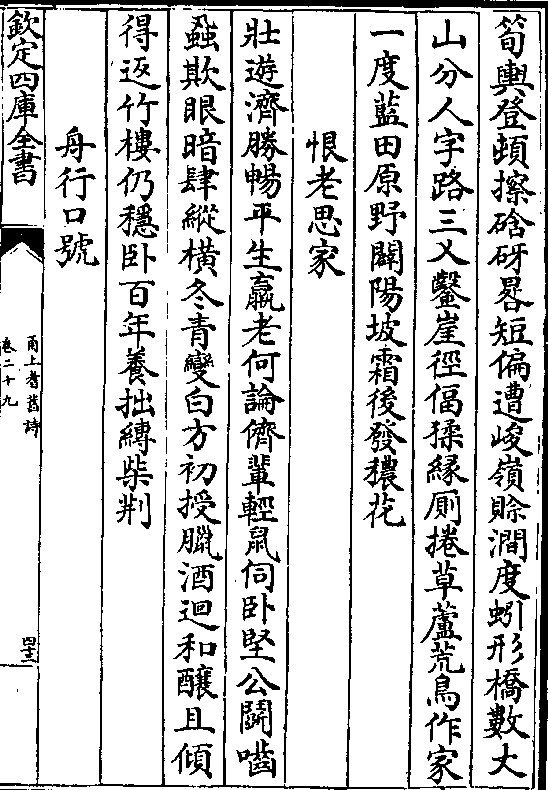 筍輿登頓擦硆砑晷短偏遭峻嶺賖澗度蚓形橋數丈
山分人字路三乂鑿崖徑偪猱緣厠捲草蘆荒鳥作家
一度藍田原野闢陽坡霜後發穠花
恨老思家
壯遊濟勝暢平生羸老何論儕輩輕鼠伺卧堅公鬬嚙
蝨欺眼暗肆縱橫冬青變白方初授臘酒迴和釀且傾
得返竹樓仍穩卧百年養拙縛柴荆
舟行口號
欽定四庫全書
甬上耆舊詩
卷二十九
四十三